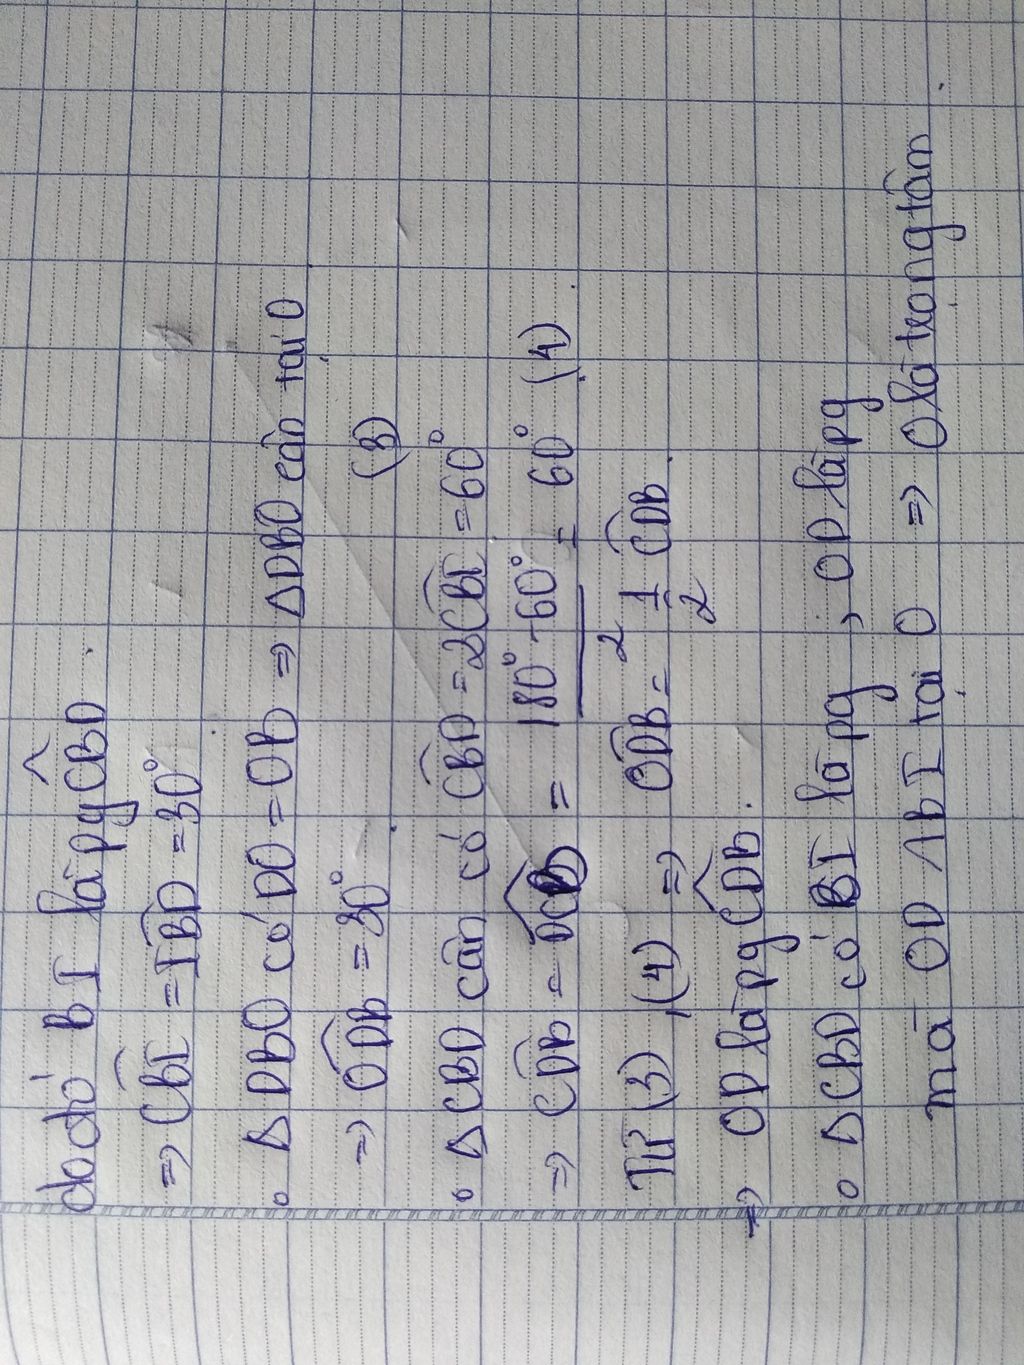 do đó BI là pg CBD^.
=> CBI^ = IBD^ = 30°
• Δ DBO có DO = OB => Δ DBO cân tại O
=> ODB^ = 30° (3)
• Δ CBD cân có CBD^ = 2CBI^ = 60°
=> CDB^ = DCB^ = (180° - 60°)/2 = 60° (4).
Từ (3), (4) => ODB^ = 1/2 CDB^.
=> OD là pg CDB^.
• Δ CBD có BI là pg, OD là pg
mà OD ∧ BI tại O => O là trọng tâm.